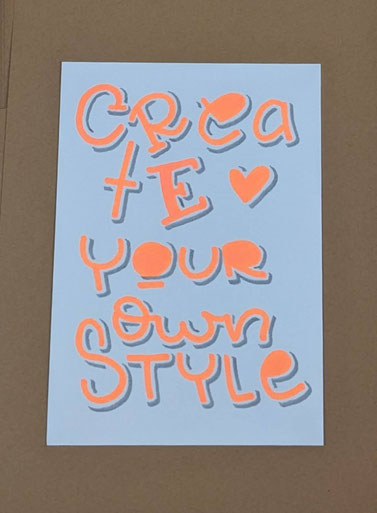 CReа
tE
YOUR
Own
STYLe